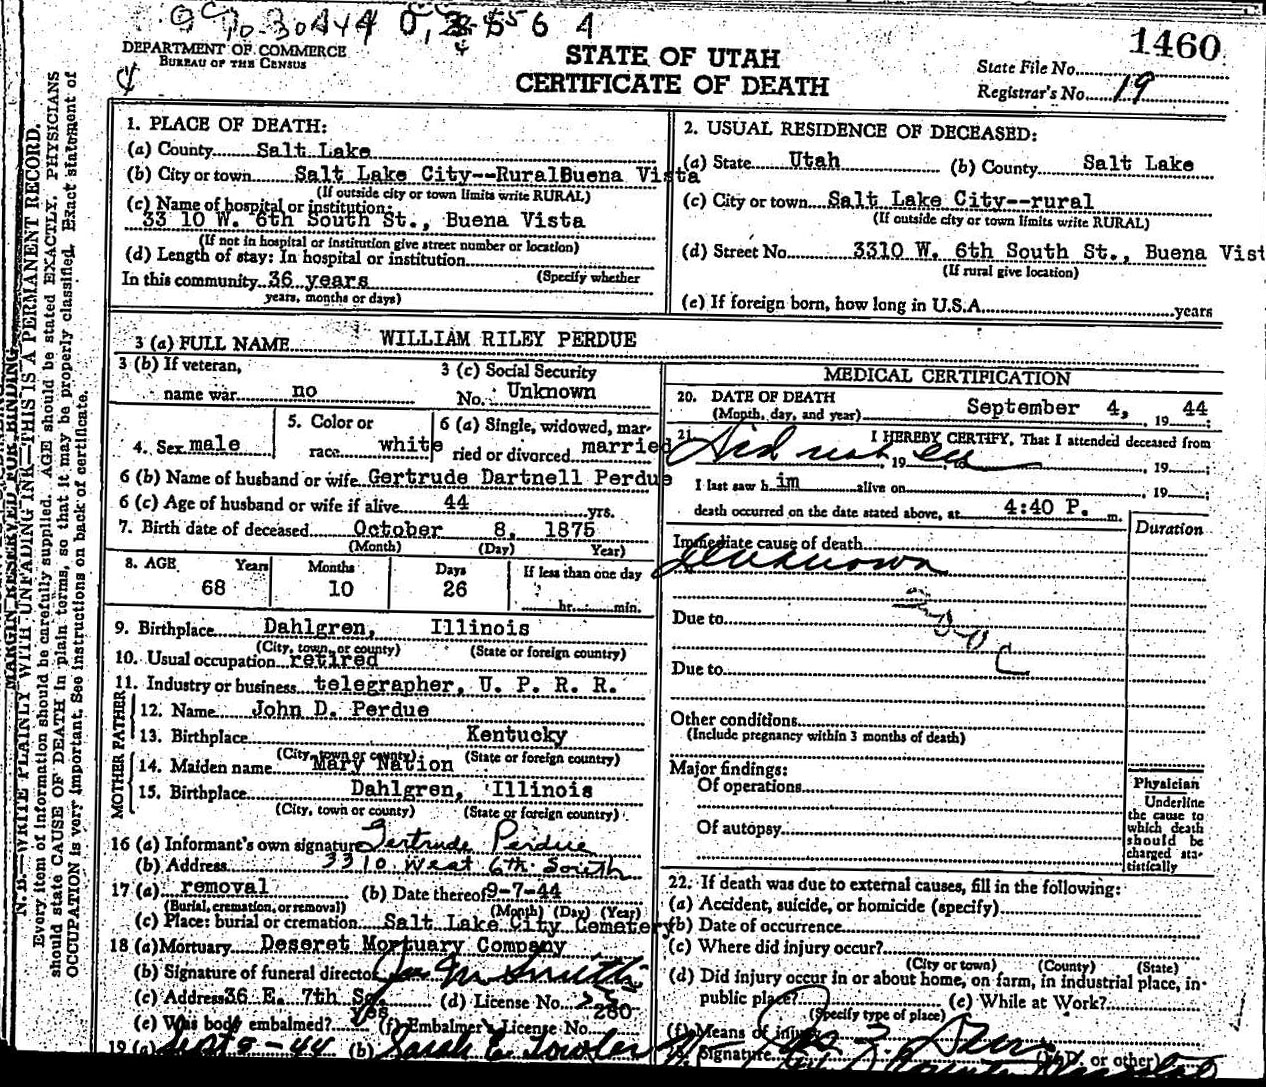 1460
DEPARTMENT OF COMMERCE
BUREAU OF THE CENSUS
STATE OF UTAH
CERTIFICATE OF DEATH
State File No.
Registrar's No. 19
MARGIN RESERVED FOR BINDING
N. B.—WRITE PLAINLY WITH UNFADING INK—THIS IS A PERMANENT RECORD.
Every item of information should be carefully supplied. AGE should be stated EXACTLY. PHYSICIANS
should state CAUSE OF DEATH in plain terms, so that it may be properly classified. Exact statement of
OCCUPATION is very important. See instructions on back of certificate.
1. PLACE OF DEATH:
(a) County Salt Lake
(b) City or town Salt Lake City--Rural Buena Vista
(If outside city or town limits write RURAL)
(c) Name of hospital or institution:
33 10 W. 6th South St., Buena Vista
(If not in hospital or institution give street number or location)
(d) Length of stay: In hospital or institution
(Specify whether
In this community 36 years
years, months or days)
2. USUAL RESIDENCE OF DECEASED:
(a) State Utah (b) County Salt Lake
(c) City or town Salt Lake City--rural
(If outside city or town limits write RURAL)
(d) Street No. 3310 W. 6th South St., Buena Vist
(If rural give location)
(e) If foreign born, how long in U.S.A. years
3 (a) FULL NAME WILLIAM RILEY PERDUE
3 (b) If veteran,
name war no
3 (c) Social Security
No. Unknown
4. Sex male
5. Color or
race white
6 (a) Single, widowed, mar-
ried or divorced married
6 (b) Name of husband or wife Gertrude Dartnell Perdue
6 (c) Age of husband or wife if alive 44 yrs.
7. Birth date of deceased October 8, 1875
(Month) (Day) Year)
8. AGE Years Months Days If less than one day
68 10 26
hr. min.
9. Birthplace Dahlgren, Illinois
(City, town, or county) (State or foreign country)
10. Usual occupation retired
11. Industry or business telegrapher, U. P. R. R.
FATHER
12. Name John D. Perdue
13. Birthplace Kentucky
(City, town or county) (State or foreign country)
MOTHER
14. Maiden name Mary Nation
15. Birthplace Dahlgren, Illinois
(City, town or county) (State or foreign country)
16 (a) Informant's own signature Gertrude Perdue
(b) Address 3310 West 6th South
17 (a) removal (b) Date thereof 9-7-44
(Burial, cremation, or removal) (Month) (Day) (Year)
(c) Place: burial or cremation Salt Lake City Cemetery
18 (a) Mortuary Deseret Mortuary Company
(b) Signature of funeral director
(c) Address 36 E. 7th So. (d) License No. 25
(e) Was body embalmed? yes (f) Embalmer's License No. 280
19 (a) Sept 5-44 (b) Sarah E. Towler
MEDICAL CERTIFICATION
20. DATE OF DEATH
(Month, day, and year) September 4, 19 44
21. I HEREBY CERTIFY, That I attended deceased from
Did not see , 19 to , 19 ;
I last saw h im alive on , 19 ;
death occurred on the date stated above, at 4:40 P. m.
Duration
Immediate cause of death
Unknown
Due to
200 C
Due to
Other conditions
(Include pregnancy within 3 months of death)
Major findings:
Of operations
Of autopsy
Physician
Underline
the cause to
which death
should be
charged sta-
tistically
22. If death was due to external causes, fill in the following:
(a) Accident, suicide, or homicide (specify)
(b) Date of occurrence
(c) Where did injury occur?
(City or town) (County) (State)
(d) Did injury occur in or about home, on farm, in industrial place, in
public place? (e) While at Work?
(Specify type of place)
(f) Means of injury
Signature. (M.D. or other)